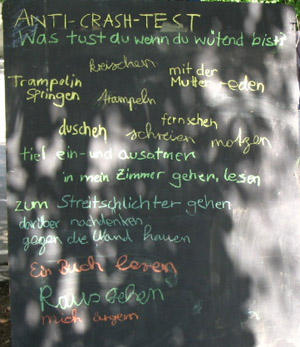 ANTI-CRASH-TEST
Was tust du wenn du wütend bist?
kreischen
mit der
Trampelin
Mutter reden
springen
stampeln
fernsehen
duschen
schreien
motzen
tief ein- und ausatmen
in mein Zimmer gehen, lesen
zum Streitschlichter gehen
darüber nachdenken
gegen die Wand hauen
Ein Buch lesen
Raus Gehen
mich ärgern